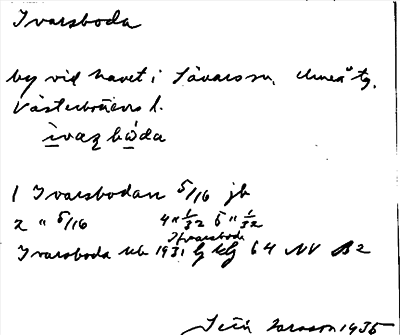 Ivarsboda
by vid havet i Sävars sn, Umeå tg,
Västerbottens l.
ìvaʐ bǒda
1 Ivarsbodan 5/16 jb
2 " 5/16 4 " 1/32 5 " 1/32
Ifvarsboda
Ivarsboda 1931 64 NV B2
1935